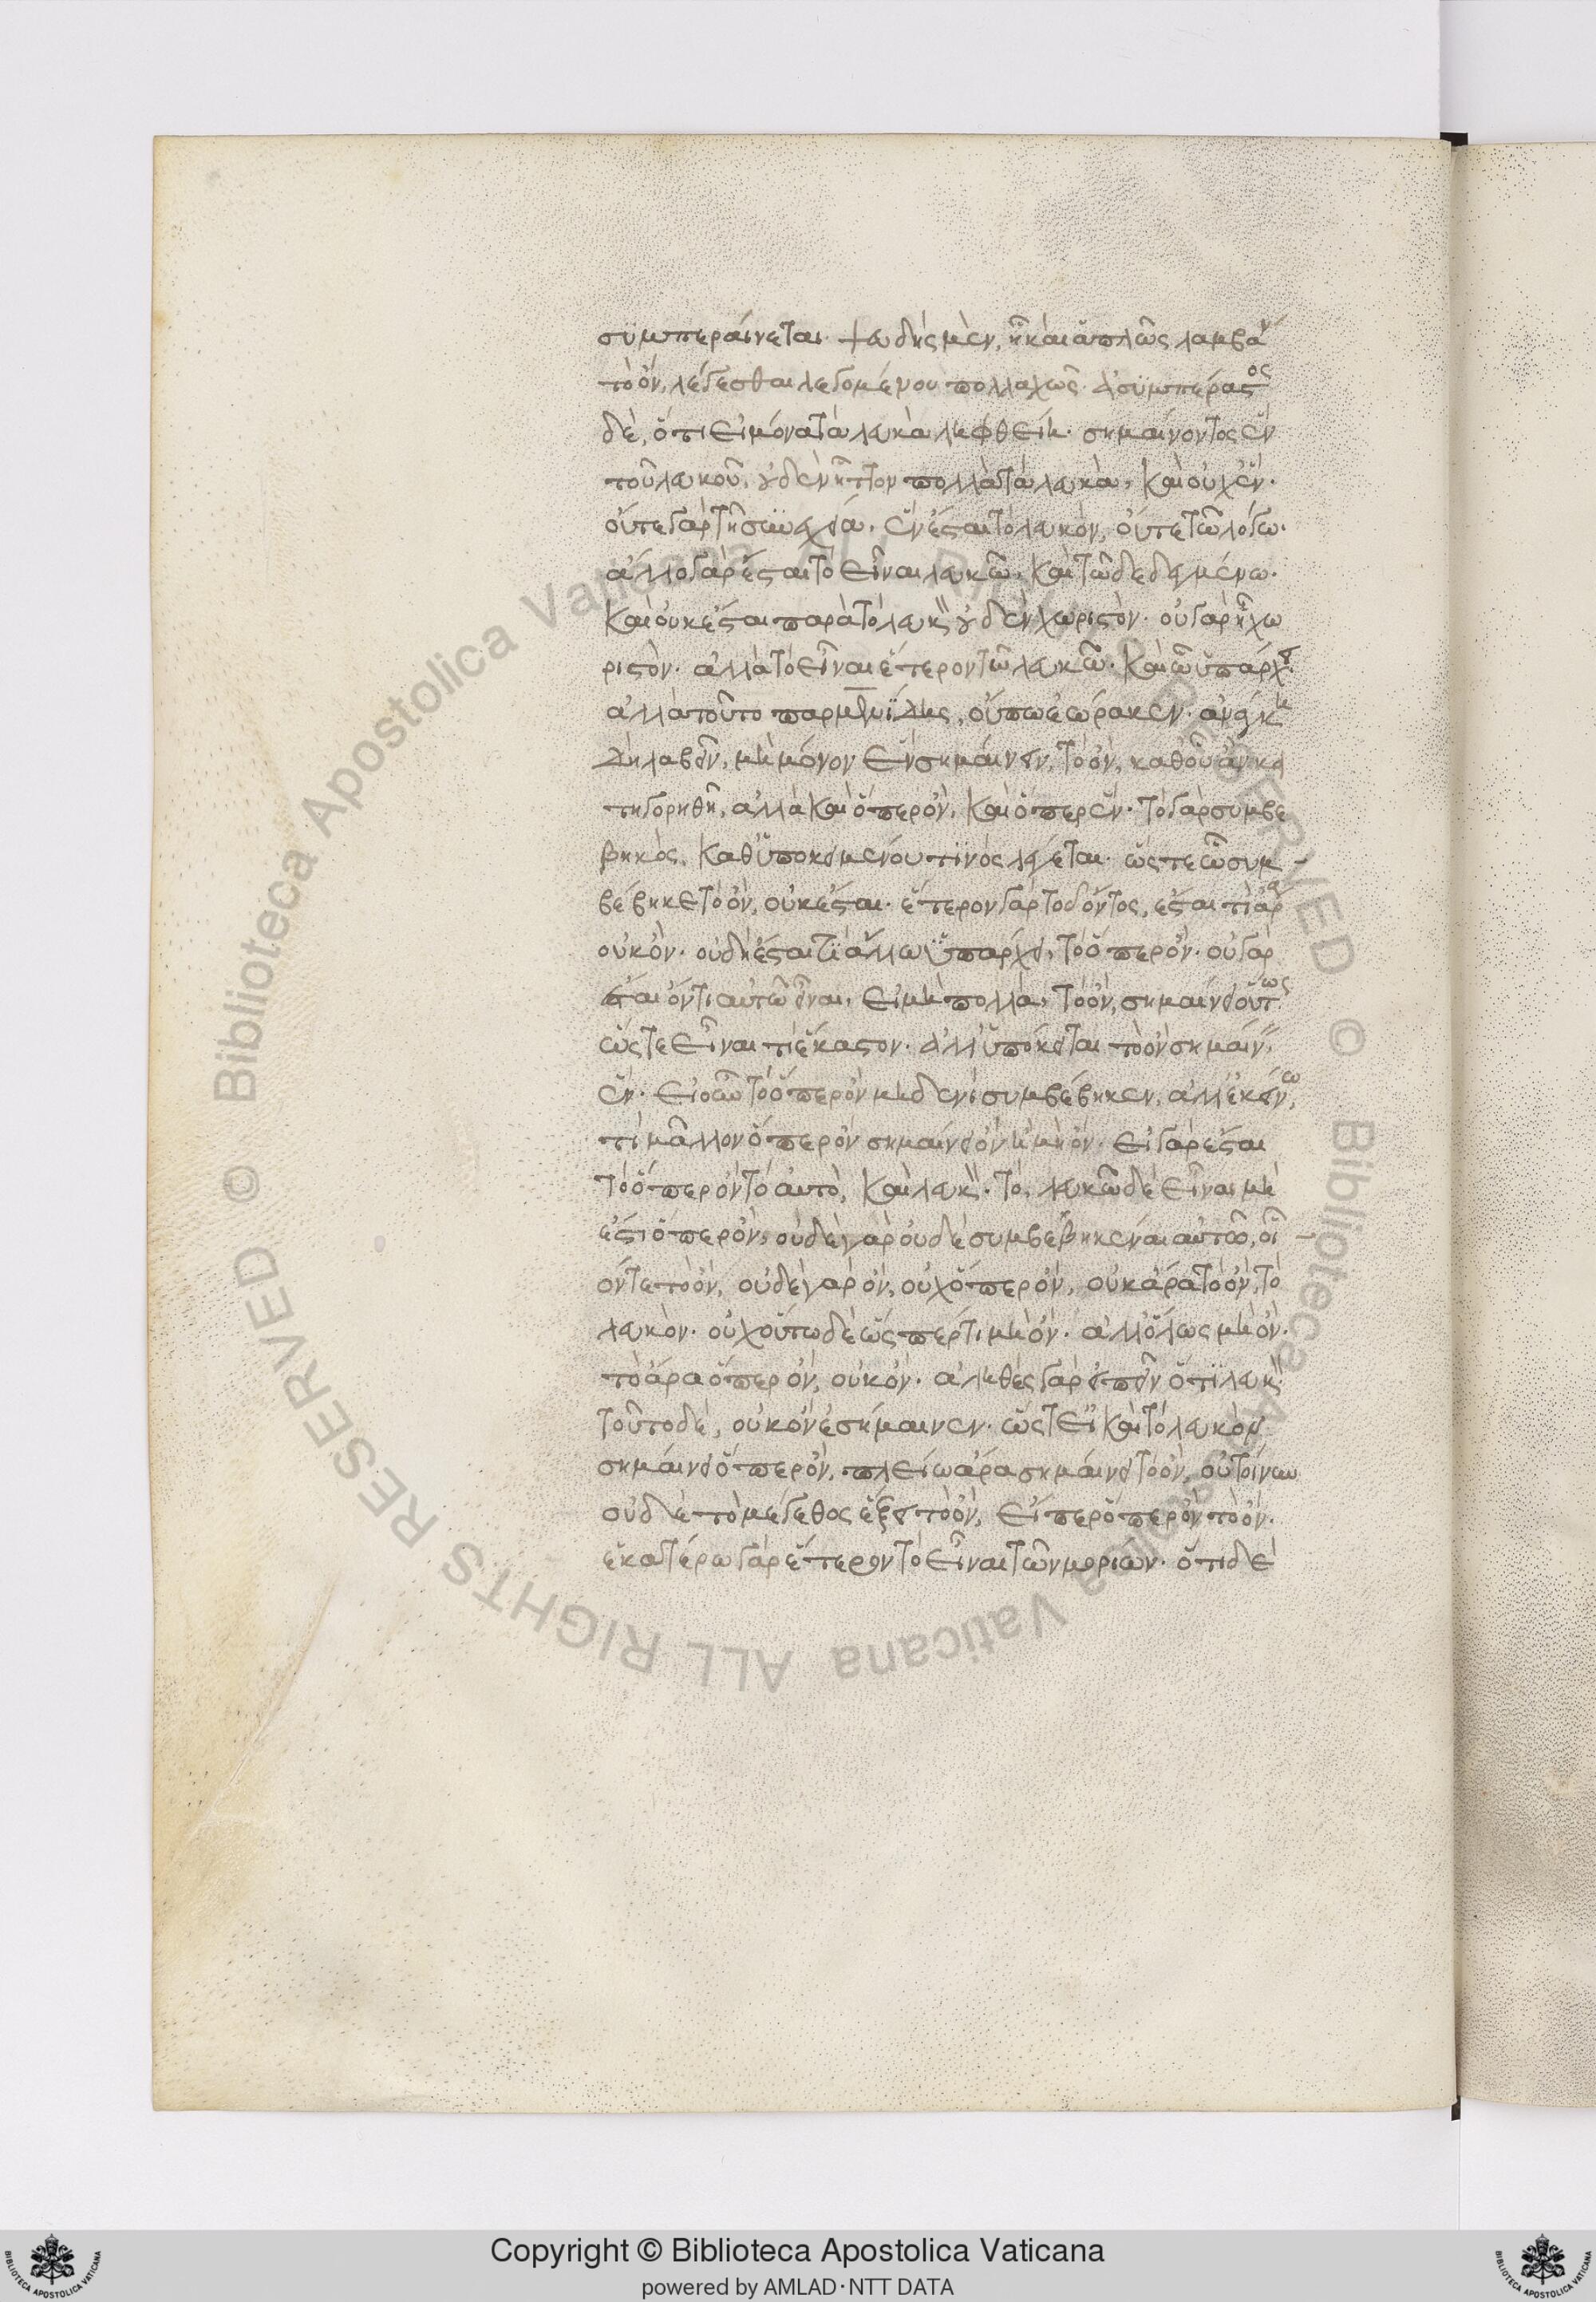 συμπεραίνεται· ψευδὴς μὲν, ᾗ καὶ ἁπλῶς λαμβάν
τὸ ὂν, λέγεσθαι λεγομένου πολλαχῶς· ἀσυμπέραστος
δὲ, ὅτι εἰ μόνα τὰ λευκὰ ληφθείη· σημαίνοντος ἓν
τοῦ λευκοῦ, οὐδὲν ἧττον πολλὰ τὰ λευκὰ, καὶ οὐχ ἕν·
οὔτε γὰρ τῇ συνεχεία, ἓν ἔσται τὸ λευκὸν, οὔτε τῶ λόγω·
ἄλλο γὰρ ἔσται τὸ εἶναι λευκῶ, καὶ τῶ δεδεγμένω·
καὶ οὐκ ἔσται παρὰ τὸ λευκὸν οὐδὲν χωριστὸν· οὐ γὰρ ᾗ χω
ριστὸν· ἀλλὰ τὸ εἶναι ἕτερον τῶ λευκῶ· καὶ ὧ ὑπάρχει·
ἀλλὰ τοῦτο παρμενίδης, οὔπω ἑώρακεν· ἀνάγκη
δὴ λαβεῖν, μὴ μόνον ἓν σημαίνειν, τὸ ὂν, καθ' οὗ ἂν κα
τηγορηθῆ, ἀλλὰ καὶ ὅπερ ὂν, καὶ ὅπερ ἕν· τὸ γὰρ συμβε
βηκὸς, καθ' ὑποκειμένου τινὸς λέγεται· ὥστε ὧ συμ
βέβηκε τὸ ὂν, οὐκ ἔσται· ἕτερον γὰρ τοῦ ὄντος, ἔσται τι ἄρα
οὐκ ὄν· οὐ δὴ ἔσται τι ἄλλω ὑπάρχει, τὸ ὅπερ ὄν· οὐ γὰρ
ἔσται ὄν τι αὐτῶ εἶναι, εἰ μὴ πολλὰ, τὸ ὂν, σημαίνει οὕτως
ὥστε εἶναι τι ἕκαστον· ἀλλ' ὑπόκειται τὸ ὂν σημαίνειν
ἕν· εἰ οὖν τὸ ὅπερ ὂν μηδενὶ συμβέβηκεν, ἀλλ' ἐκείνω,
τί μᾶλλον ὅπερ ὂν σημαίνει ὂν ἢ μὴ ὄν· εἰ γὰρ ἔσται
τὸ ὅπερ ὂν τὸ αὐτὸ, καὶ λευκὸν· τὸ, λευκῶ δὲ εἶναι μὴ
ἔστι ὅπερ ὂν, οὐδὲ γὰρ οὐδὲ συμβεβηκέναι αὐτῶ, οἷ
όν τε τὸ ὂν, οὐδὲ γὰρ ὂν, οὐχ ὅπερ ὂν, οὐκ ἄρα τὸ ὂν, τὸ
λευκὸν· οὐχ οὕτω δὲ ὥσπερ τι μὴ ὄν· ἀλλ' ὅλως μὴ ὄν·
τὸ ἄρα ὅπερ ὂν, οὐκ ὄν· ἀληθὲς γὰρ εἰπεῖν ὅτι λευκὸν·
τοῦτο δὲ, οὐκ ὂν ἐσήμαινεν· ὥστ' εἰ καὶ τὸ λευκὸν
σημαίνει ὅπερ ὂν, πλείω ἄρα σημαίνει τὸ ὂν, οὐ τοίνυν
οὐδὲ τὸ μέγεθος ἕξει τὸ ὂν, εἴπερ ὅπερ ὂν τὸ ὄν·
ἑκατέρω γὰρ ἕτερον τὸ εἶναι τῶν μορίων· ὅτι δὲ
Copyright © Biblioteca Apostolica Vaticana
powered by AMLAD·NTT DATA